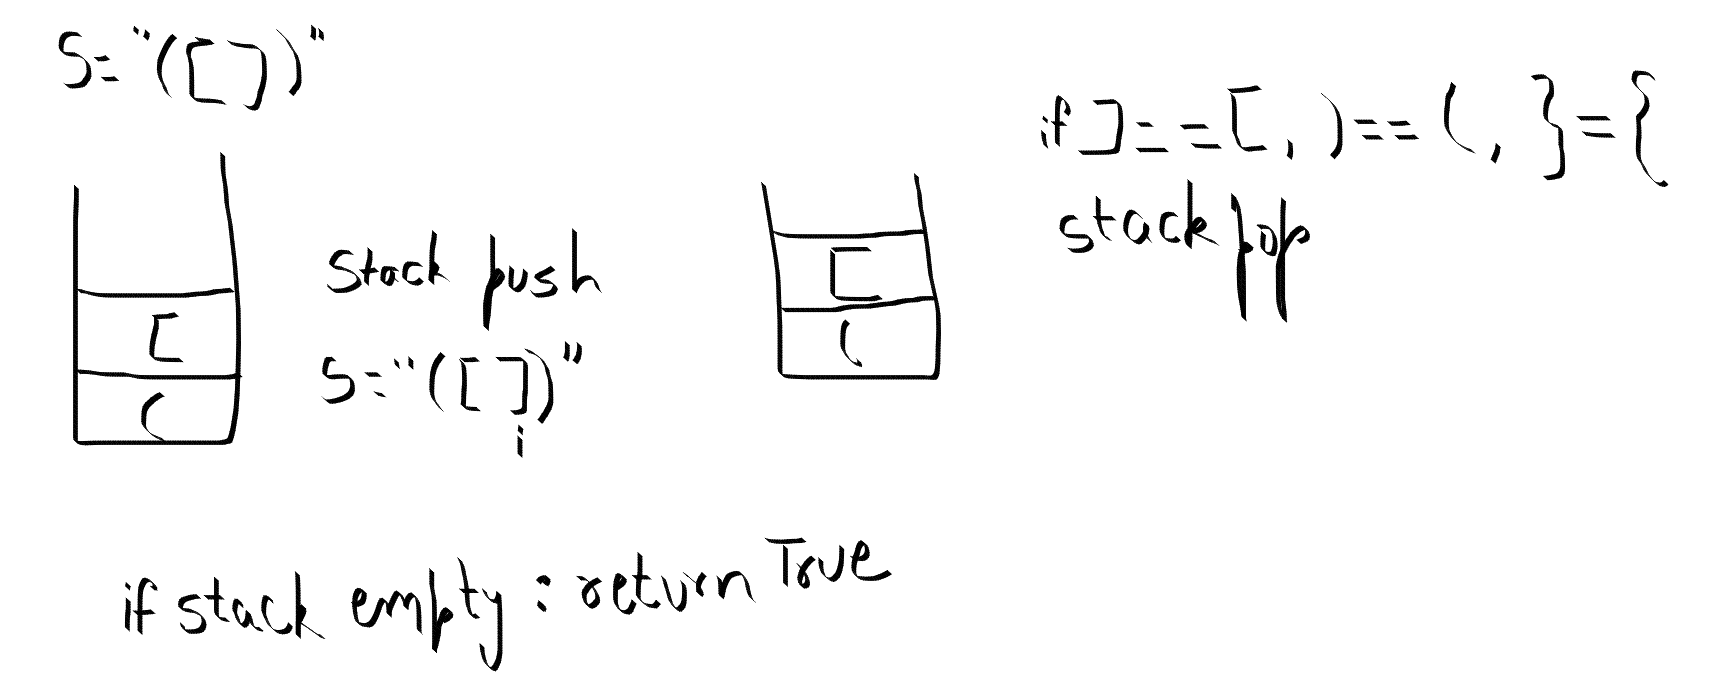 S="([])"
[
(
Stack push
S="([])"
i
[
(
if ]==[, )==(, }={
stack pop
if stack empty : return True